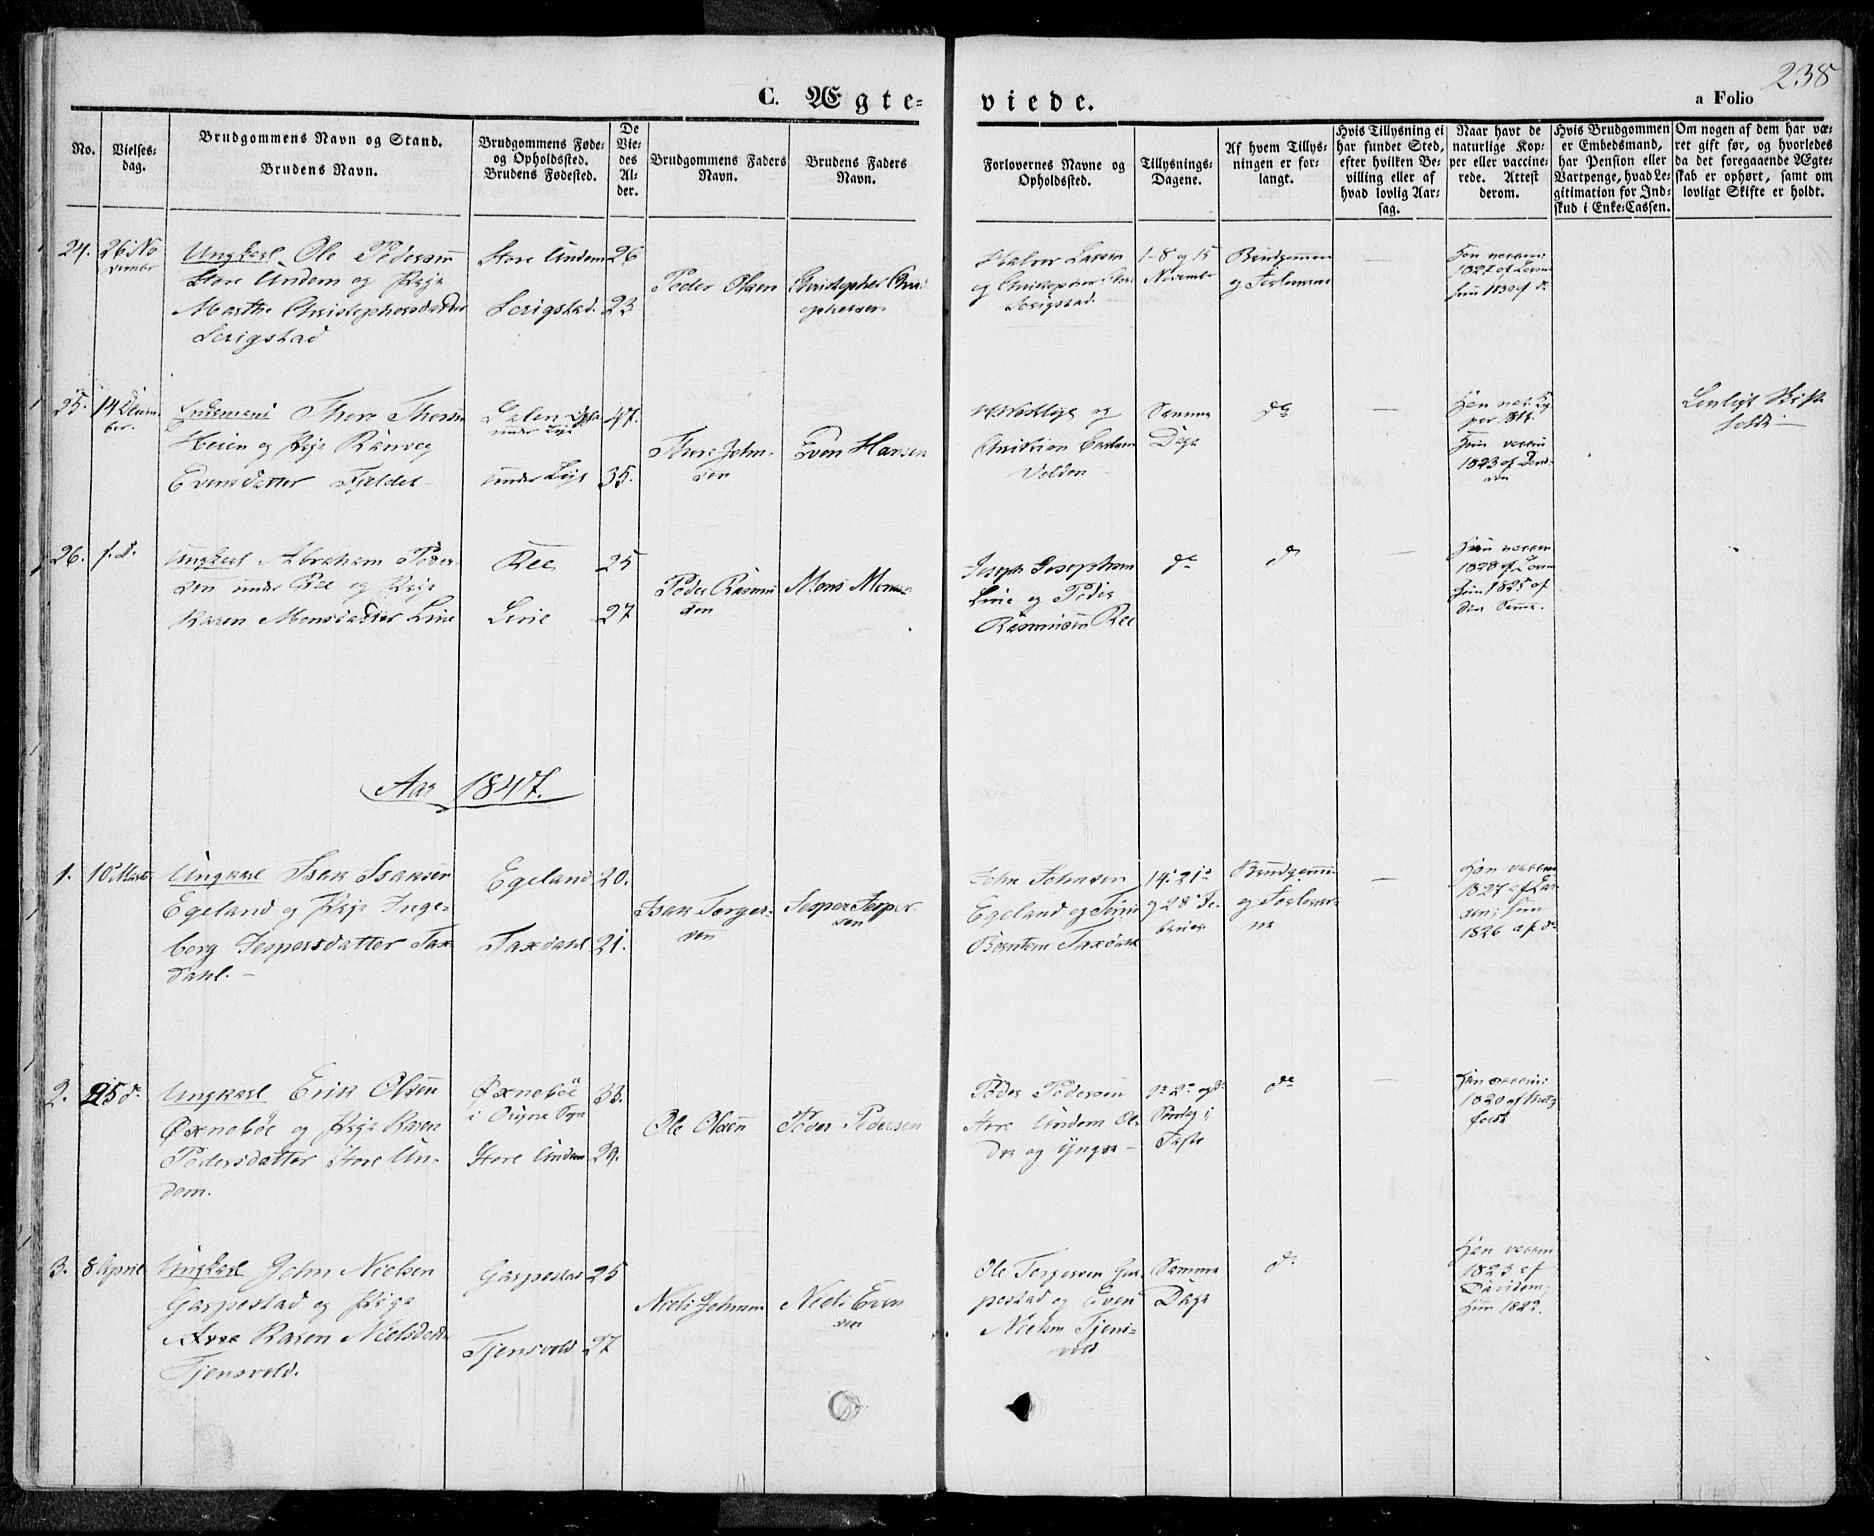 238
C. Ægte-
viede.
a Folio
No.
Vielses-
dag.
Brudgommens Navn og Stand.
Brudens Navn.
Brudgommens Føde-
og Opholdssted.
Brudens Fødested.
De
Vie-
des
Al-
der.
Brudgommens Faders
Navn.
Brudens Faders
Navn.
Forlovernes Navne og
Opholdssted.
Tillysnings-
Dagene.
Af hvem Tillys-
ningen er for-
langt.
Hvis Tillysning ei
har fundet Sted,
efter hvilken Be-
villing eller af
hvad lovlig Aar-
sag.
Naar havt de
naturlige Kop-
per eller vaccine-
rede. Attest
derom.
Hvis Brudgommen
er Embedsmand,
har Pension eller
Vartpenge, hvad Le-
gitimation for Ind-
skud i Enke-Cassen.
Om nogen af dem har væ-
ret gift før, og hvorledes
da det foregaaende Ægte-
skab er ophørt, samt om
lovligt Skifte er holdt.
24.
26 No
vember
Ungkarl Ole Pedersen
Store Undem og Pige
Marthe Christophersdatter
Serigstad
Store Undem
Serigstad.
26
23
Peder Olsen
Christopher Chri
ophersen
Halvor Larsen
og Christopher
Serigstad.
1-8 og 15
November
Brudgommen
og Forloverne
Han vaccin:
1827 af
hun 1830 af do
25.
14 Decem-
ber.
Enkemand Thore Thorsen
Heien og Pige Ranveg
Evensdatter Fjeldet
under Lye
under Lye
47.
35.
Thore John-
sen
Even Hansen
og
Christian
Velden
Samme
Dage
do
—
Han nat. Kop-
per
Hun vaccin
1823 af
Lovligt Skifte
holdt —
26.
s. d.
Ungkarl Abraham Peder-
sen under Ree og Pige
Karen Monsdatter Line
Ree
Line
25
27
Peder Rasmus-
sen
Mons Monsen
Jesper Josephsen
Line og Peder
Rasmussen Ree
do
do
—
Han vaccin
1828 af
hun 1825 af
den Samme.
Aar 1847.
1.
10 Marts
Ungkarl Isak Isaksen
Egeland og Pige Inge-
berg Jespersdatter Tax
dahl. —
Egeland
Taxdahl
20.
21.
Isak Torger-
sen
Jesper Jesper-
sen
John Johnsen
Egeland og
Berntsen Taxdahl
14. 21
og 28 Fe-
bruar
Brudgommen
og Forlover-
ne
—
Han vaccin
1827 af Lar-
sen; hun
1826 af do
2.
25 do
Ungkarl Erik Olsen
Øxnebøe og Pige Karen
Pedersdatter Store Un-
dem.
Øxnebøe
i Ougne Sogn
Store Undem
33.
29.
Ole Olsen
Peder Pedersen
Peder Pedersen
Store Undem Æl-
dre og Yngre —
1. 2. og 3
Søndag i
Faste
do
—
Han vaccin:
1820 af Metz-
feldt
3.
8 April
Ungkarl John Nielsen
Gaspestad og Pige
Karen Nielsdatter
Tjensvold.
Gaspestad
Tjensvold
25
27
Niels Johnsen
Niels Even
sen
Ole Torgersen Gas-
pestad og Even
Nielsen Tjens-
vold
Samme
Dage
do
Han vaccin
1823 af
Davidsen;
hun 1822.